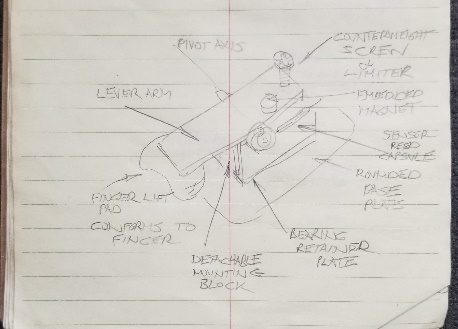 PIVOT AXIS
COUNTERWEIGHT
SCREW
&
LIMITER
LEVER ARM
EMBEDDED
MAGNET
SENSOR
REED
CAPSULE
ROUNDED
BASE
PLATE
FINGER LIFT
PAD
CONFORMS TO
FINGER
BEARING
RETAINER
PLATE
DETACHABLE
MOUNTING
BLOCK